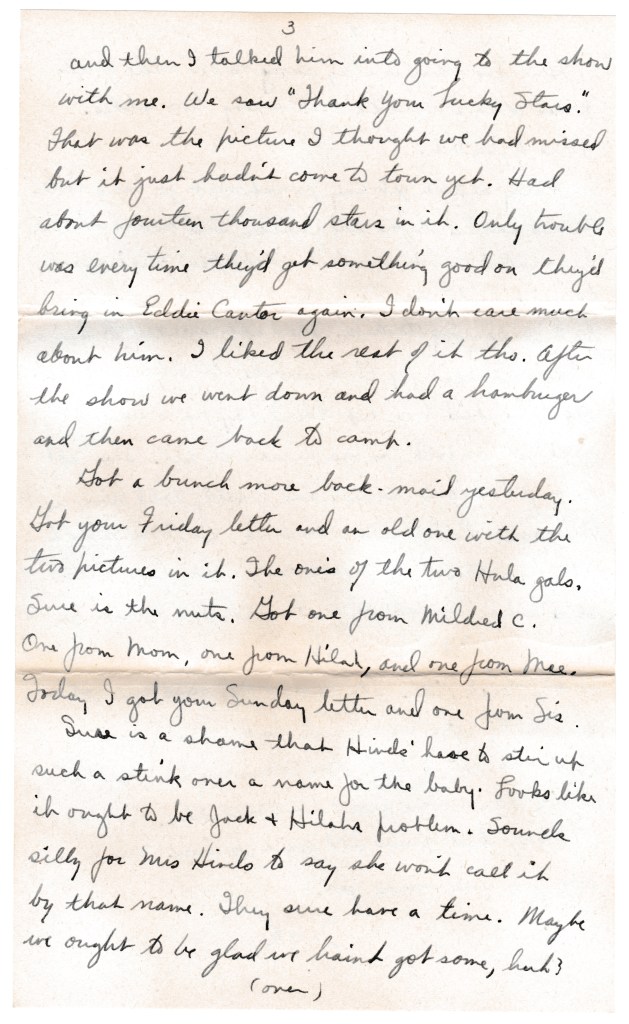 3
and then I talked him into going to the show
with me. We saw "Thank Your Lucky Stars."
That was the picture I thought we had missed
but it just hadn't come to town yet. Had
about fourteen thousand stars in it. Only trouble
was every time they'd get something good on they'd
bring in Eddie Cantor again. I don't care much
about him. I liked the rest of it tho. After
the show we went down and had a hamburger
and then came back to camp.
Got a bunch more back-mail yesterday.
Got your Friday letter and an old one with the
two pictures in it. The one's of the two Hula gals.
Sure is the nuts. Got one from Mildred C.
One from Mom, one from Hilah, and one from Mae.
Today I got your Sunday letter and one from Sis.
Sure is a shame that Hinds' have to stir up
such a stink over a name for the baby. Looks like
it ought to be Jack + Hilahs problem. Sounds
silly for Mrs Hinds to say she won't call it
by that name. They sure have a time. Maybe
we ought to be glad we haint got some, huh?
(over)